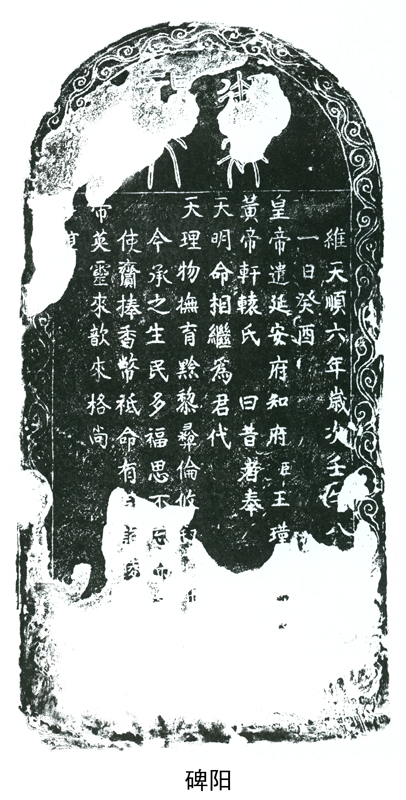 維天順六年歲次壬午八
一日癸酉
皇帝遣延安府知府臣王璜
黃帝軒轅氏 曰昔者奉
天明命相繼爲君代
天理物撫育黔黎彝倫攸
今承之生民多福思不忘而
使齎捧香幣祗命有
帝英靈來歆來格尚
碑阳